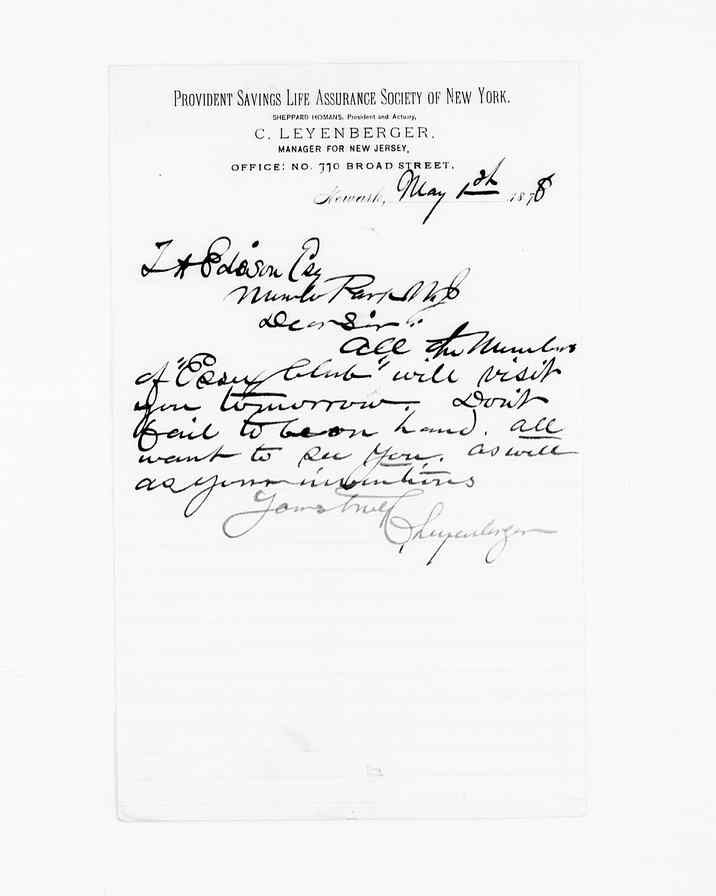 PROVIDENT SAVINGS LIFE ASSURANCE SOCIETY OF NEW YORK.
SHEPPARD HOMANS, President and Actuary,
C. LEYENBERGER,
MANAGER FOR NEW JERSEY,
OFFICE: NO. 770 BROAD STREET,
Newark, May 1st 1878
T A Edison Esq
Menlo Park N J
Dear Sir:
All the Members
of "Essex Club" will visit
you tomorrow. Don't
fail to be on hand. all
want to see you. as well
as your inventions
Yours truly
C Leyenberger